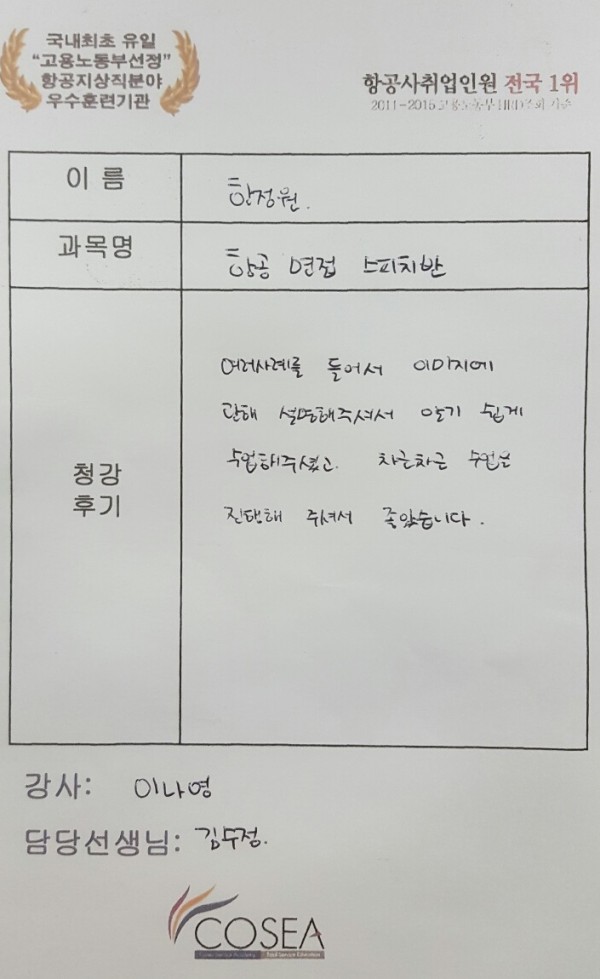 국내최초 유일
“고용노동부선정”
항공지상직분야
우수훈련기관
항공사취업인원 전국 1위
2011-2015 고용노동부 HRD조회 기준
이 름
한정원.
과목명
항공 면접 스피치반
청강
후기
여러사례를 들어서 이미지에
관해 설명해주셔서 알기 쉽게
수업해주셨고. 차근차근 수업을
진행해 주셔서 좋았습니다.
강사: 이나영
담당선생님: 김수정.
COSEA